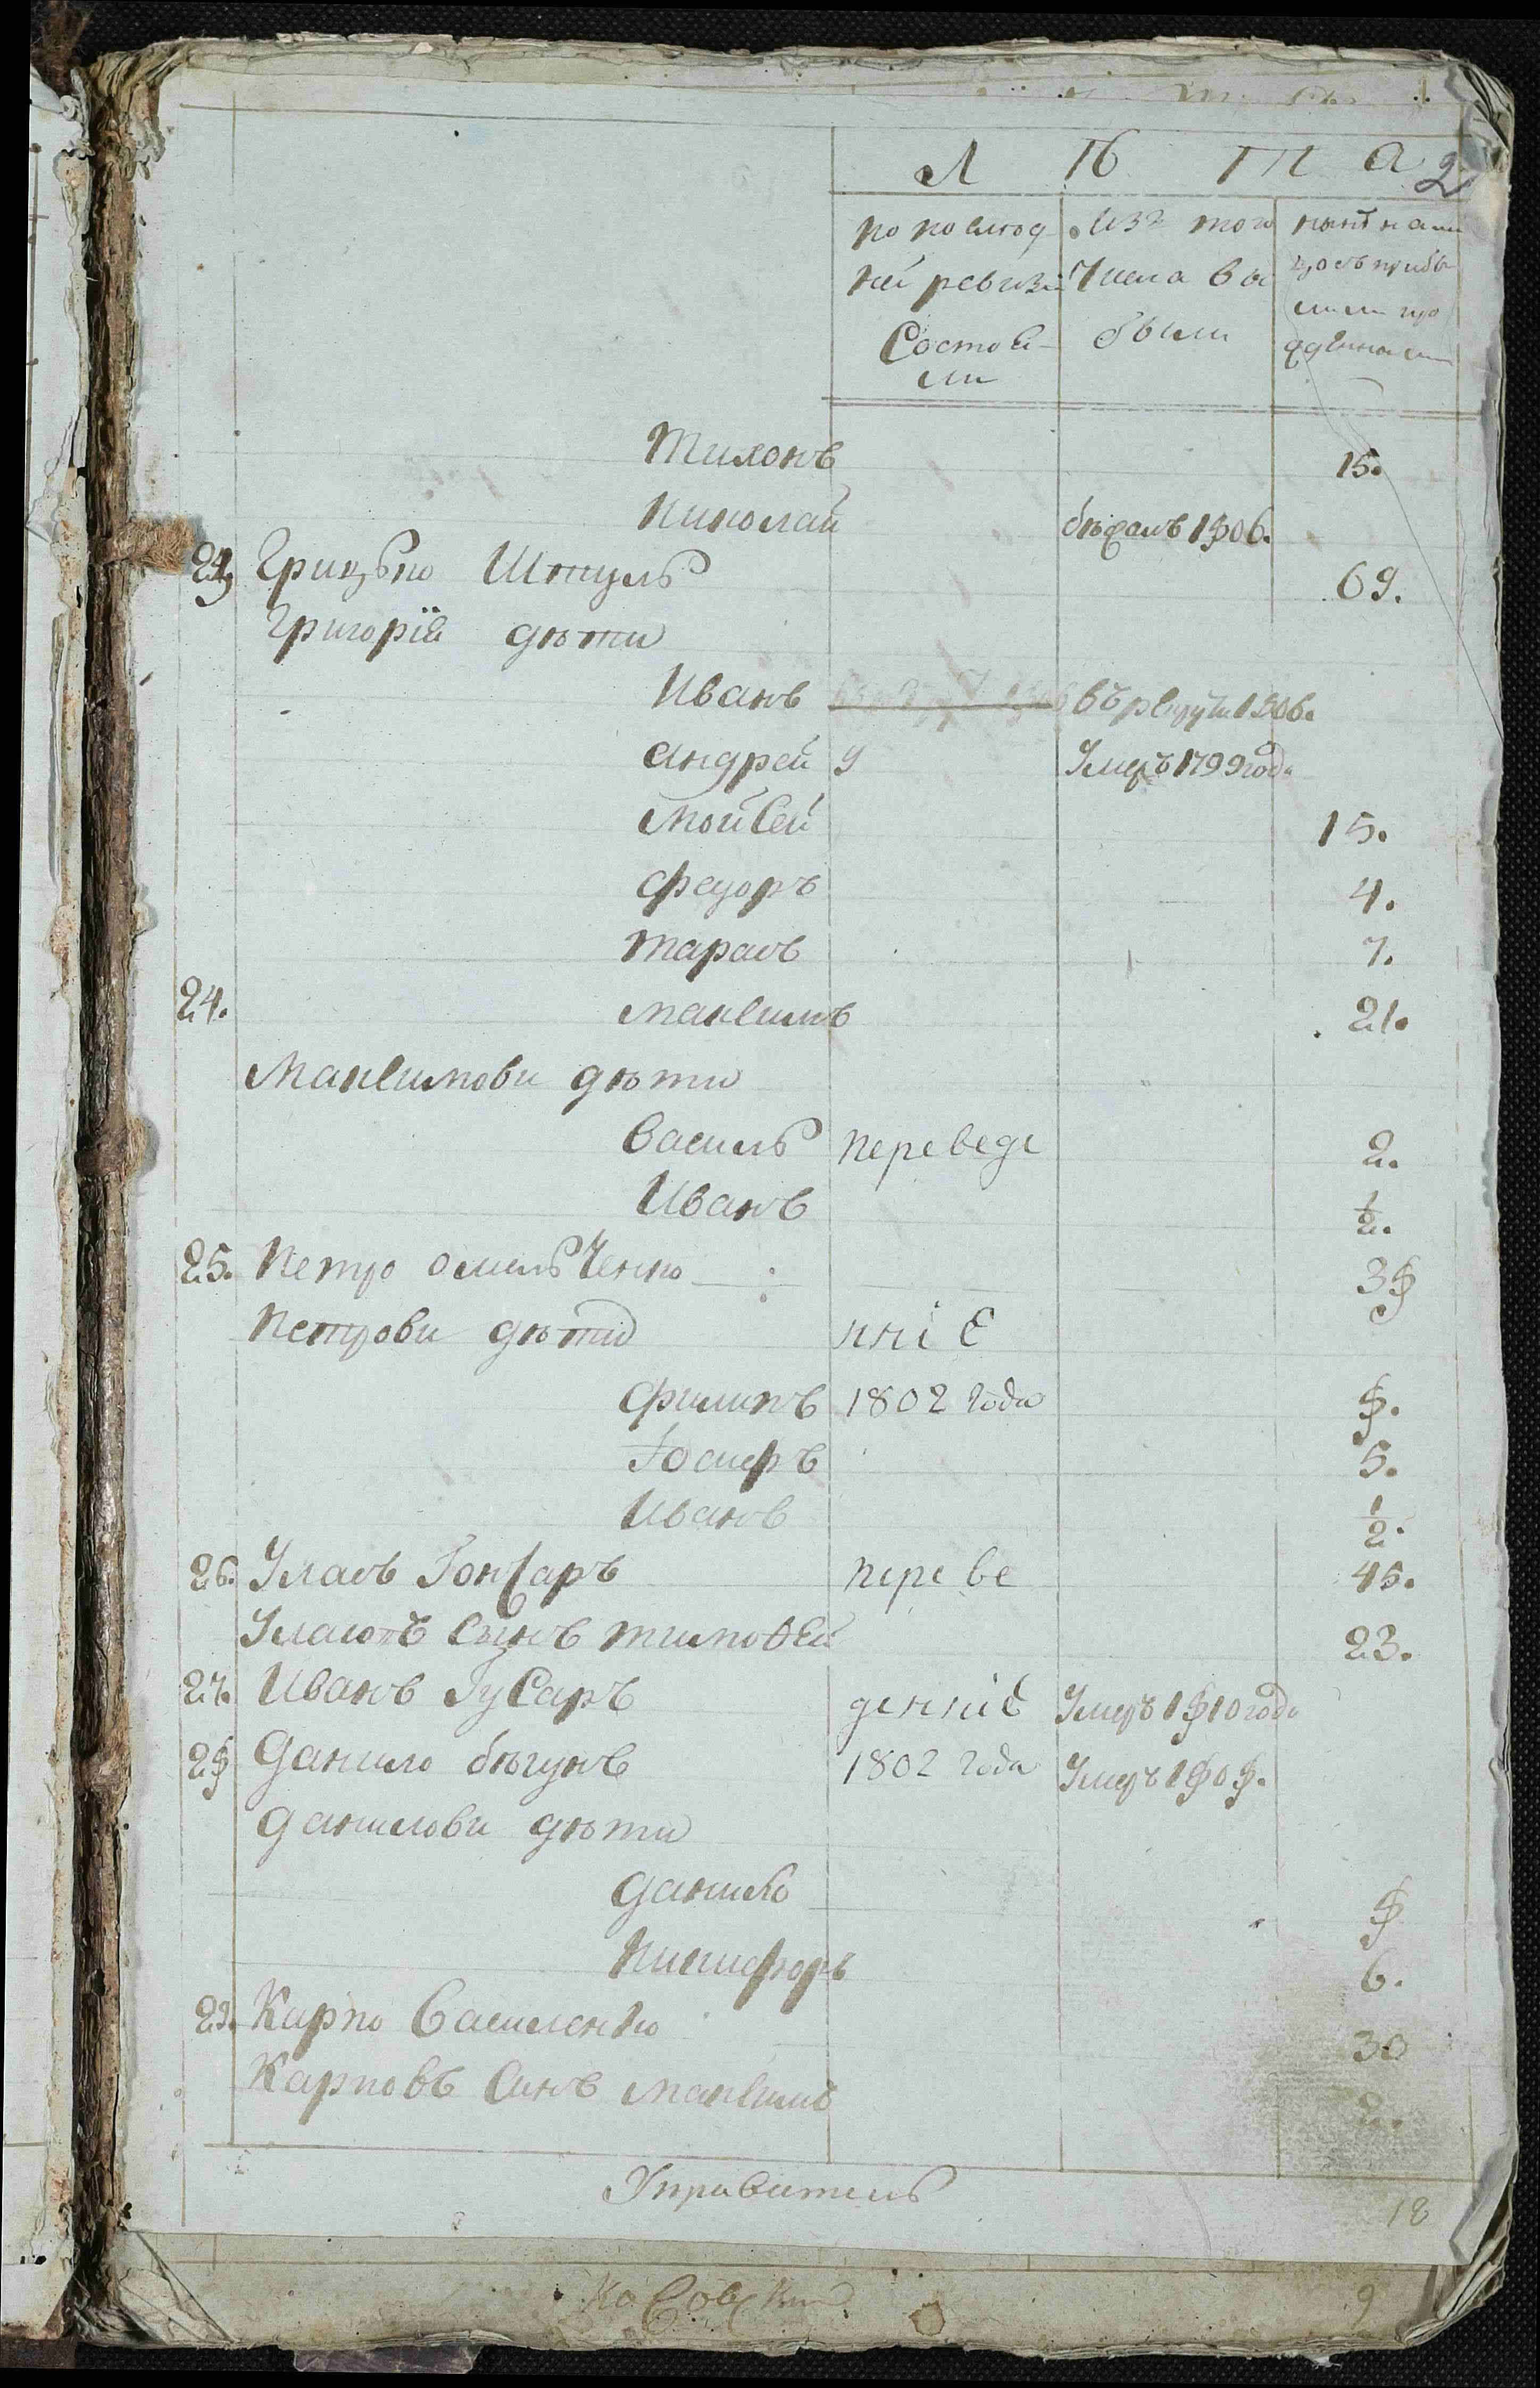 Л Ѣ Т А
2
по послѣд
ней ревизіи
Состоя-
ли
Изъ того
Числа вы
были
Тихонъ 15.
Николай бѣжалъ 1806.
Грицько Шкуль 69.
Григорія дѣти
Иванъ въ рекруты 1806.
Андрей 9 Умеръ 1799 года
Мойсей 15.
Федоръ 4.
Тарасъ 7.
24. Максимъ 21.
Максимови дѣти
Василь переведе 2.
Иванъ ½.
25. Петро Омельченко 38
Петрови дѣти нніе
Филипъ 1802 года 8.
Іосифъ 5.
Иванъ ½.
26. Уласъ Гончаръ переве 45.
Уласовъ Сынъ Тимофей 23.
27. Иванъ Гусаръ денніе Умеръ 1810 года
28 Данило бѣгунъ 1802 года Умеръ 1808.
Данилови дѣти
Данило 8
Никифоръ 6.
29. Карпо Василенко 30
Карповъ Синъ Максимъ 2.
Управитель
18
9